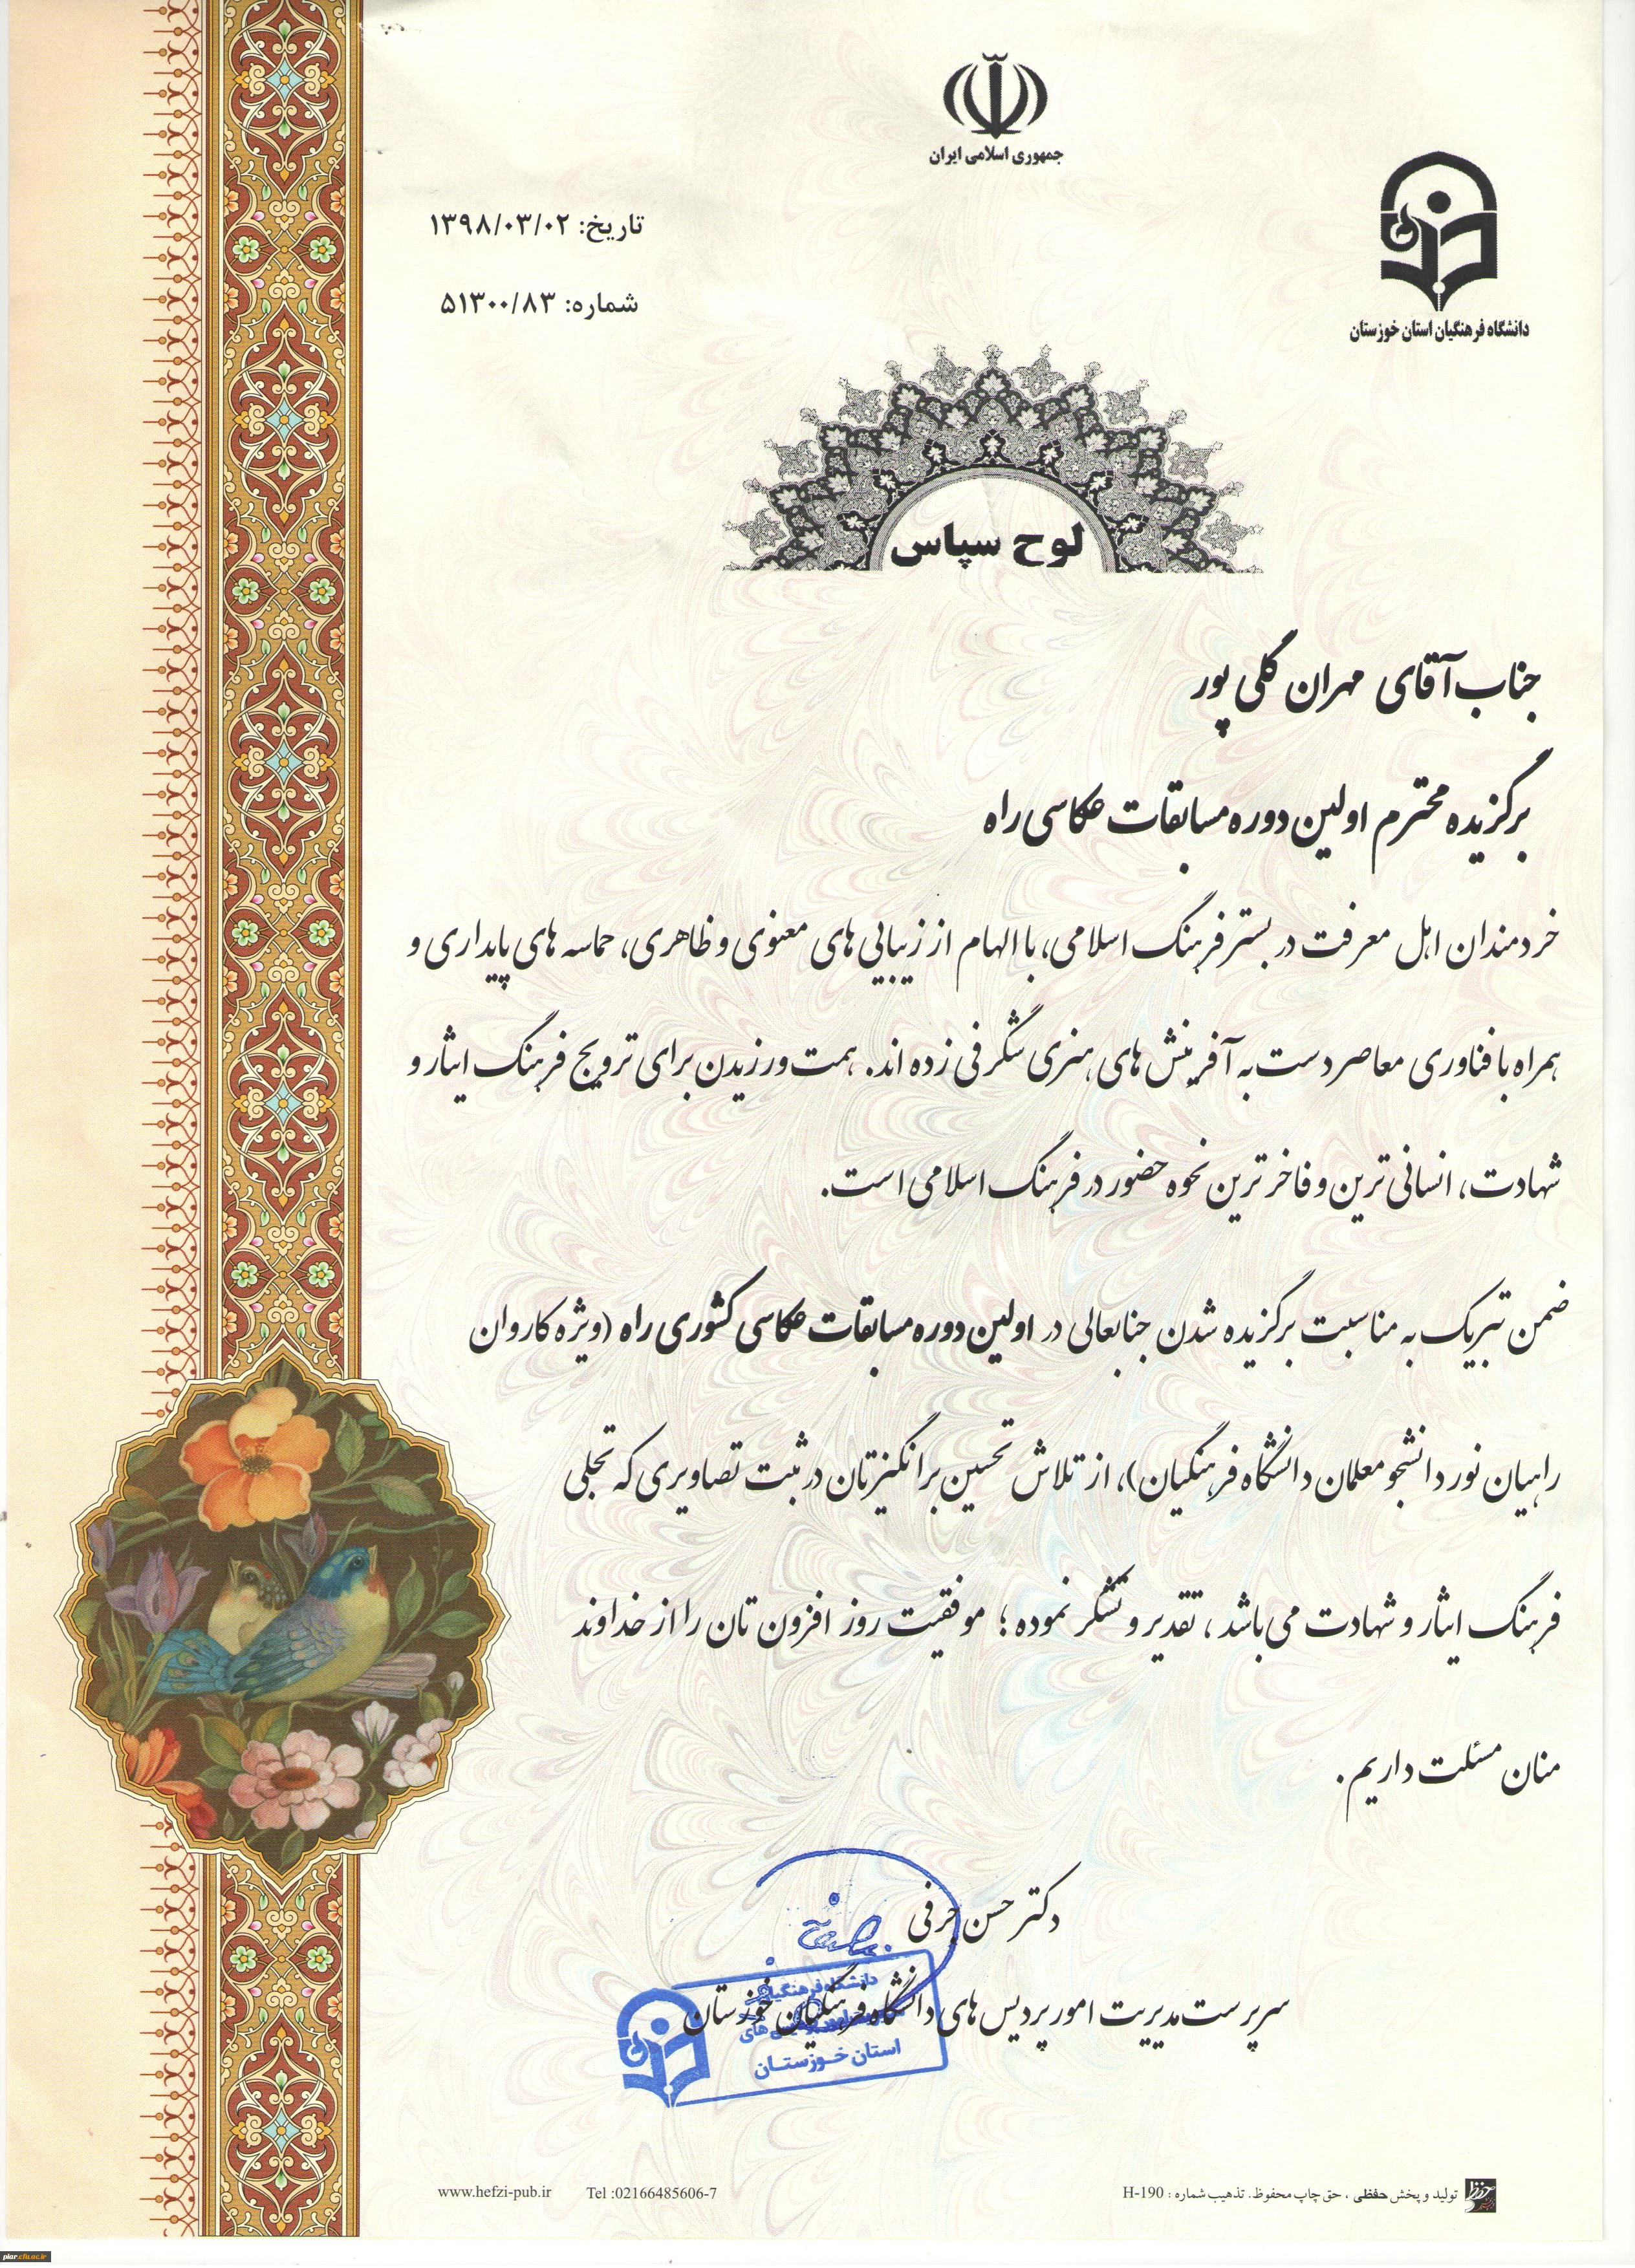 جمهوری اسلامی ایران
دانشگاه فرهنگیان استان خوزستان
تاریخ: ۱۳۹۸/۰۳/۰۲
شماره: ۵۱۳۰۰/۸۳
لوح سپاس
جناب آقای مهران گلی پور
برگزیده محترم اولین دوره مسابقات عکاسی راه
خردمندان اهل معرفت در بستر فرهنگ اسلامی، با الهام از زیبایی های معنوی و ظاهری، حماسه های پایداری و
همراه با فناوری معاصر دست به آفرینش های هنری شگرفی زده اند. همت ورزیدن برای ترویج فرهنگ ایثار و
شهادت، انسانی ترین و فاخر ترین نحوه حضور در فرهنگ اسلامی است.
ضمن تبریک به مناسبت برگزیده شدن جنابعالی در اولین دوره مسابقات عکاسی کشوری راه (ویژه کاروان
راهیان نور دانشجو معلمان دانشگاه فرهنگیان)، از تلاش تحسین برانگیزتان در ثبت تصاویری که تجلی
فرهنگ ایثار و شهادت می باشد ، تقدیر و تشکر نموده ؛ موفقیت روز افزون تان را از خداوند
منان مسئلت داریم .
دکتر حسن حرفی
سرپرست مدیریت امور پردیس های دانشگاه فرهنگیان خوزستان
دانشگاه فرهنگیان
استان خوزستان
تولید و پخش حفظی ، حق چاپ محفوظ. تذهیب شماره : H-190
Tel :02166485606-7
www.hefzi-pub.ir
piar.cfu.ac.ir